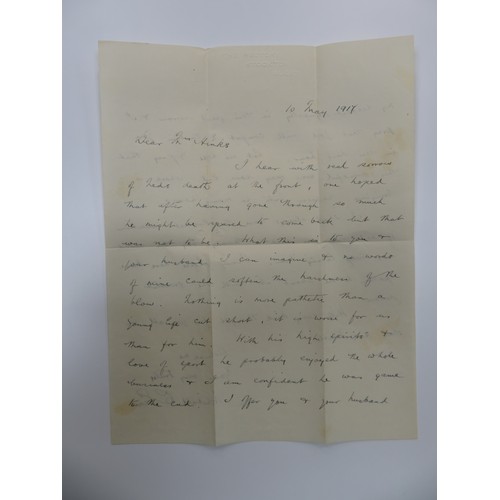 10 May 1917
Dear Mrs
I hear with real sorrow
of death at the front, one hoped
that after having gone through so much
he might be spared to come back but that
was not to be. What this is to you &
your husband I can imagine & no words
of mine could soften the harshness of the
blow. Nothing is more pathetic than a
young life cut short, it is worse for us
than for him. With his high spirits &
love of sport he probably enjoyed the whole
business & I am confident he was game
to the end. I offer you & your husband